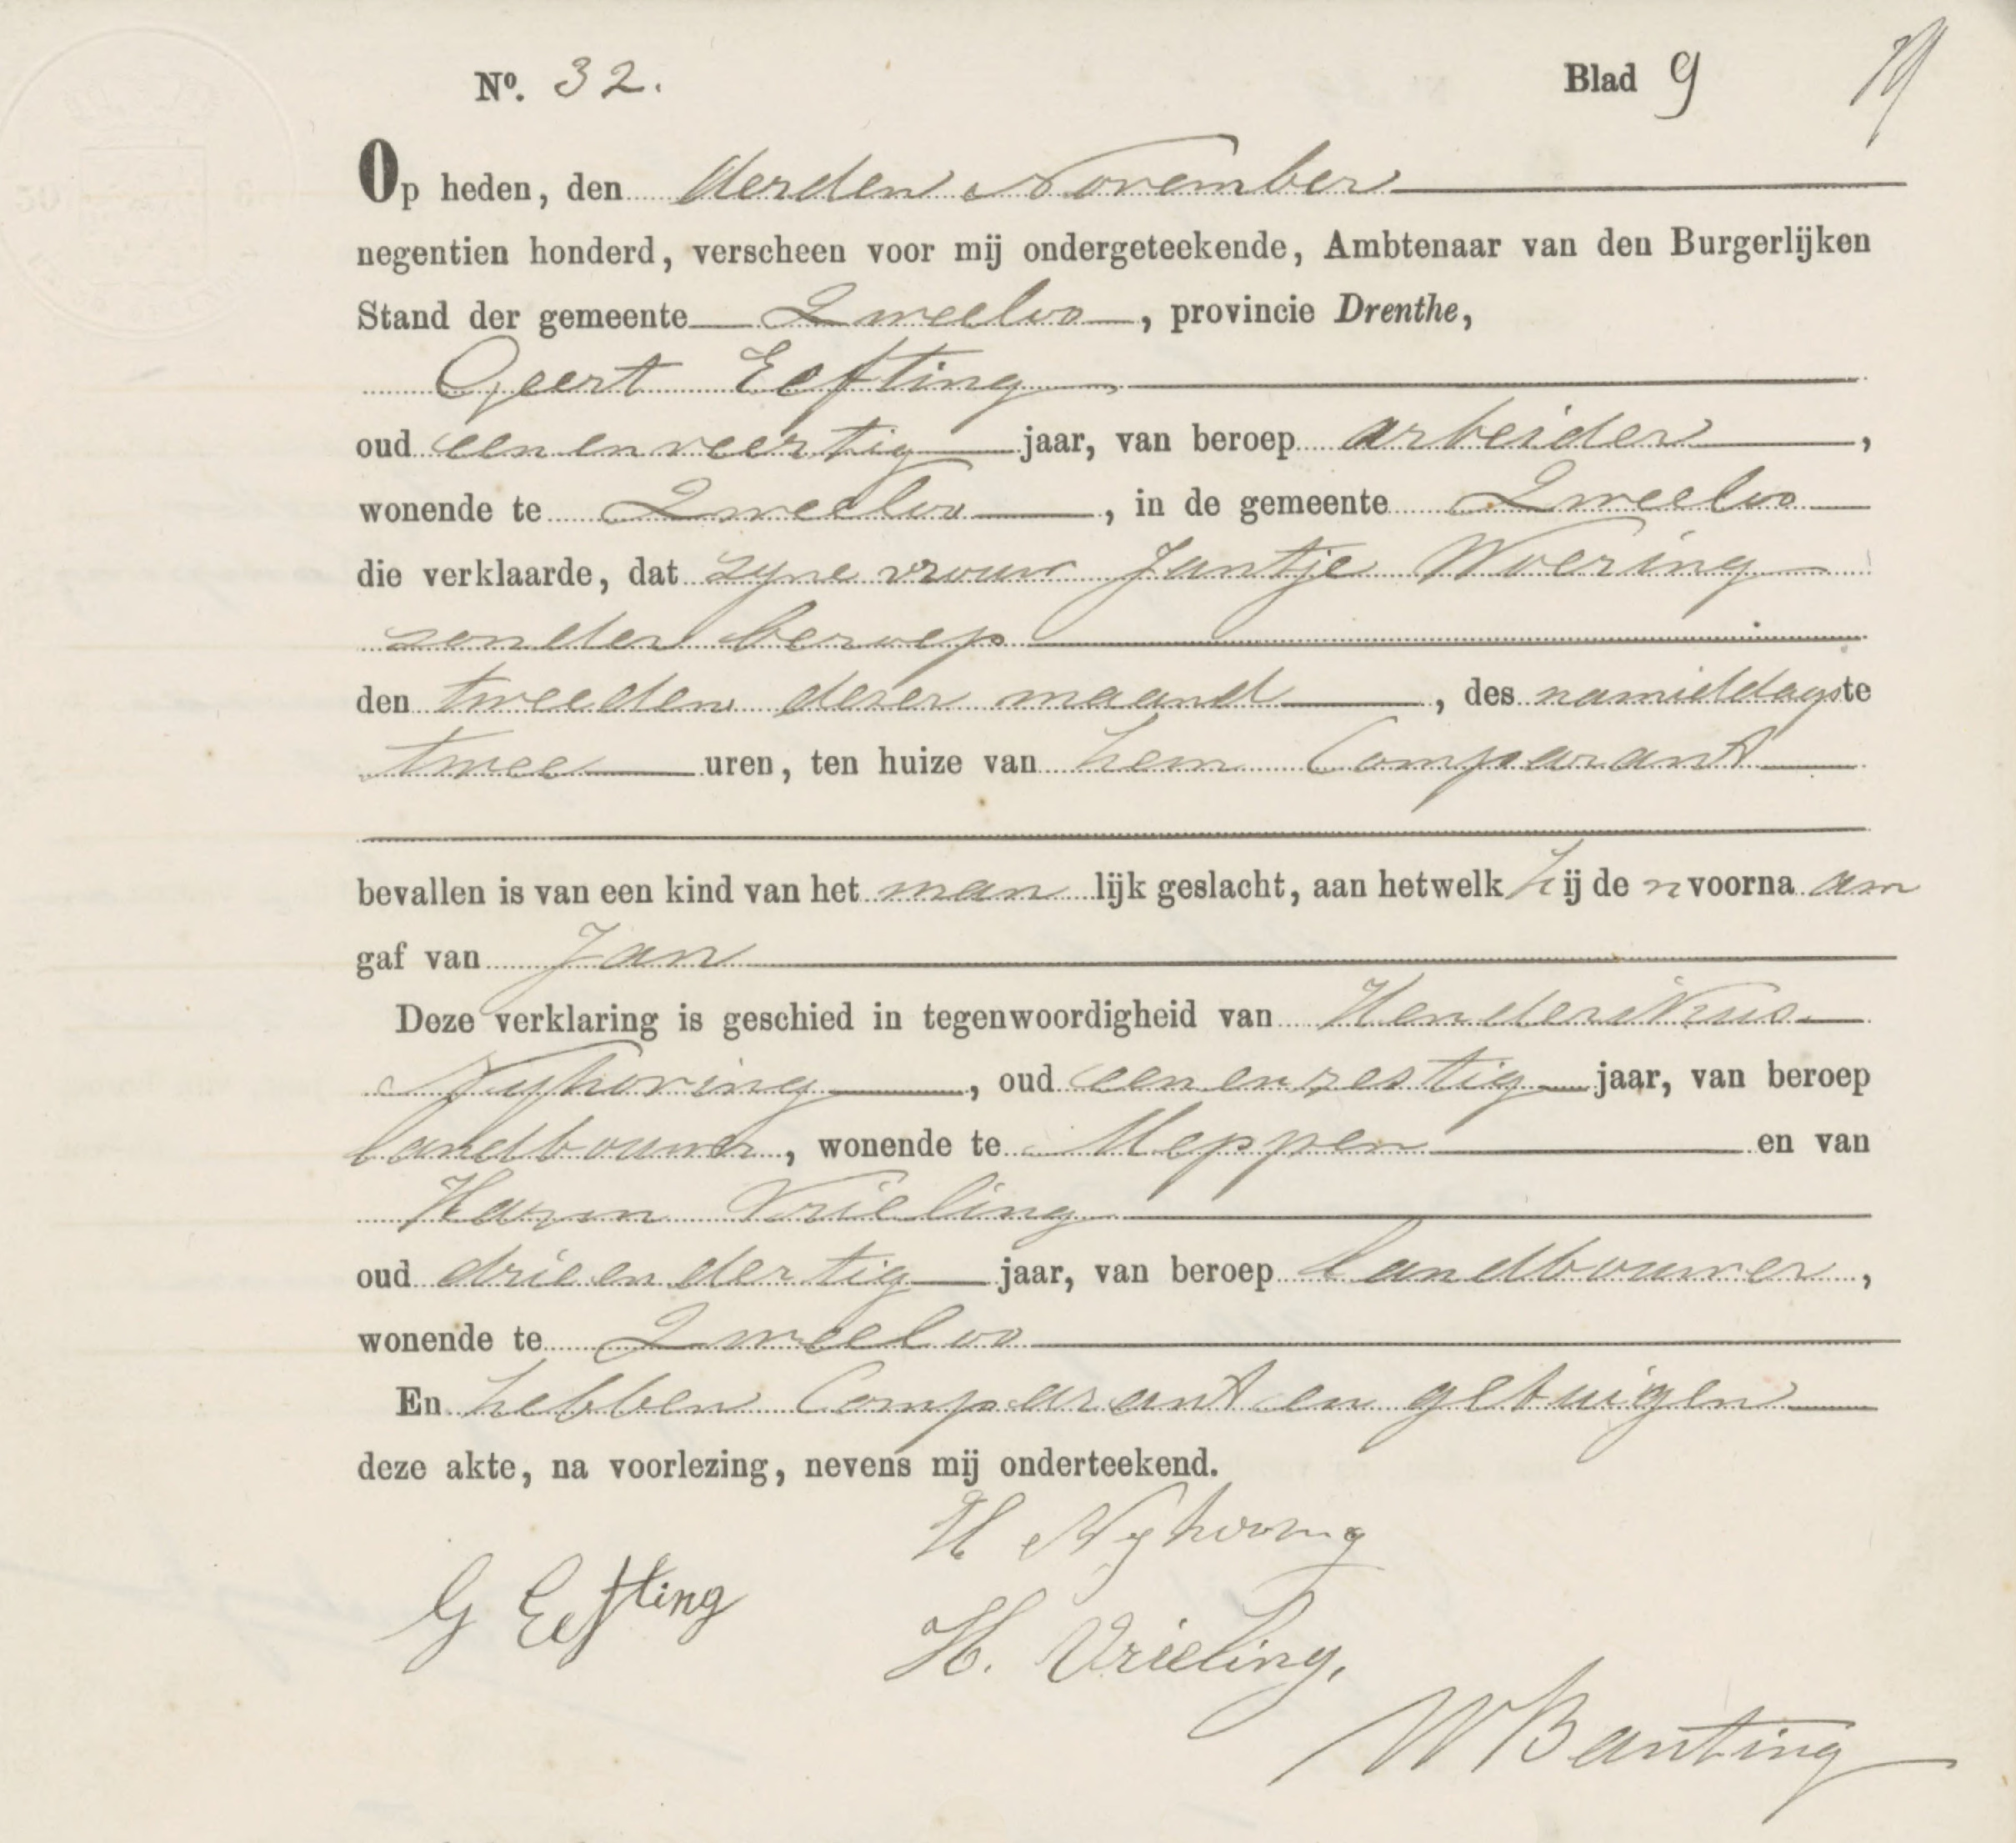 Nº. 32.
Blad 9
Op heden, den derden November
negentien honderd, verscheen voor mij ondergeteekende, Ambtenaar van den Burgerlijken
Stand der gemeente Zweeloo, provincie Drenthe,
Geert Eefting
oud een en veertig jaar, van beroep arbeider,
wonende te Zweeloo, in de gemeente Zweeloo
die verklaarde, dat zyne vrouw Jantje Woering
zonder beroep
den tweeden dezer maand, des namiddags te
twee uren, ten huize van hem Comparant
bevallen is van een kind van het man lijk geslacht, aan hetwelk hij de n voorna am
gaf van Jan
Deze verklaring is geschied in tegenwoordigheid van Henderikus
Nyhoving, oud een en zestig jaar, van beroep
landbouwer, wonende te Meppen en van
Harm Vrieling
oud drie en dertig jaar, van beroep landbouwer,
wonende te Zweeloo
En hebben Comparant en getuigen
deze akte, na voorlezing, nevens mij onderteekend.
H Nyhoving
G Eefting
H. Vrieling.
W Banting